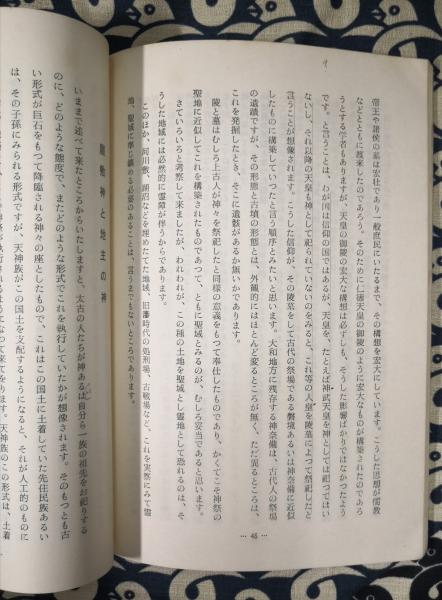 帝王や諸侯の墓は宏壮であり一般庶民にいたるまで、その構想を宏大にしています。こうした思想が儒教
などとともに渡来したのであろう。そのために仁徳天皇の御陵のように宏大なものが構築されたのであろ
うとする学者もありますが、天皇の御陵の宏大な構想は必ずしも、そうした影響ばかりではなかったよう
です。と言うことは、わが国は信仰の国ではあるが、天皇を、たとえば神武天皇を神としては祀つてはい
ないし、それ以降の天皇も神として祀られていないのをみると、これ等の人皇を陵墓によつて祭祀したと
言うことが想像されます。こうした信仰が、その陵墓をして古代の祭場である磐境あるいは神奈備に近似
したものに構築していつたものと言う順序とみたいと思います。大和地方に残存する神奈備は、古代人の祭場
の遺蹟ですが、その形態と古墳の形態とは、外観的にはほとんど変るところが無く、ただ異るところは、
これを発掘したとき、そこに遺骸があるか無いかであります。
陵と墓はむしろ上古人が神々を祭祀したと同様の意義をもつて奉仕したものであり、かくてこそ神祭の
聖地に近似してこれを構築されたものであつて、ともに聖域とみるのが、むしろ妥当であると思います。
さていろいろと考察して来ましたが、われわれが、この種の土地を聖域とし霊地として恐れるのは、そ
うした地域には必然的に霊障が伴うからであります。
このほか、河川敷、湖沼などを埋めたてた地域、旧藩時代の処刑場、古戦場など、これを実際にみて霊
地、聖域に準じ鎮める必要のあることは、言うまでもないところであります。
… 45 …
神と地主の神
いままで述べて来たところからいたしますと、太古の人たちが神あるいは自分ら一族の祖先をお祀りする
のに、どのような態度で、またどのような形式でこれを執行していたかが想像されます。そのもつとも古
い形式が巨石をもつて降臨される神々の座としたもので、これはこの国土に土着していた先住民族あるい
は、その子孫にみられる形式ですが、天神族がこの国土を支配するようになると、それが人工的のものに
ようになつて来ております。天神族のこの形式は、土着